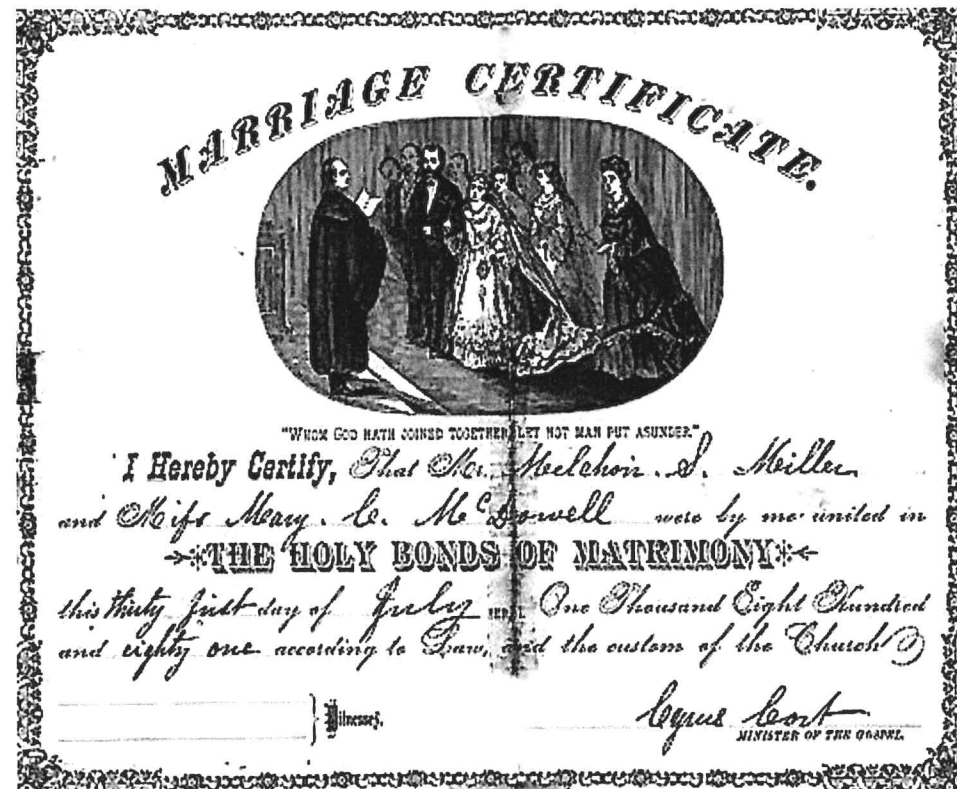 MARRIAGE CERTIFICATE.
"WHOM GOD HATH JOINED TOGETHER LET NOT MAN PUT ASUNDER."
I Hereby Certify, That Mr. Melchoir. S. Miller
and Miss Mary. C. McDowell were by me united in
THE HOLY BONDS OF MATRIMONY
this thirty first day of July One Thousand Eight Hundred
and eighty one according to Law, and the custom of the Church
Witnesses.
Cyrus Cort
MINISTER OF THE GOSPEL.